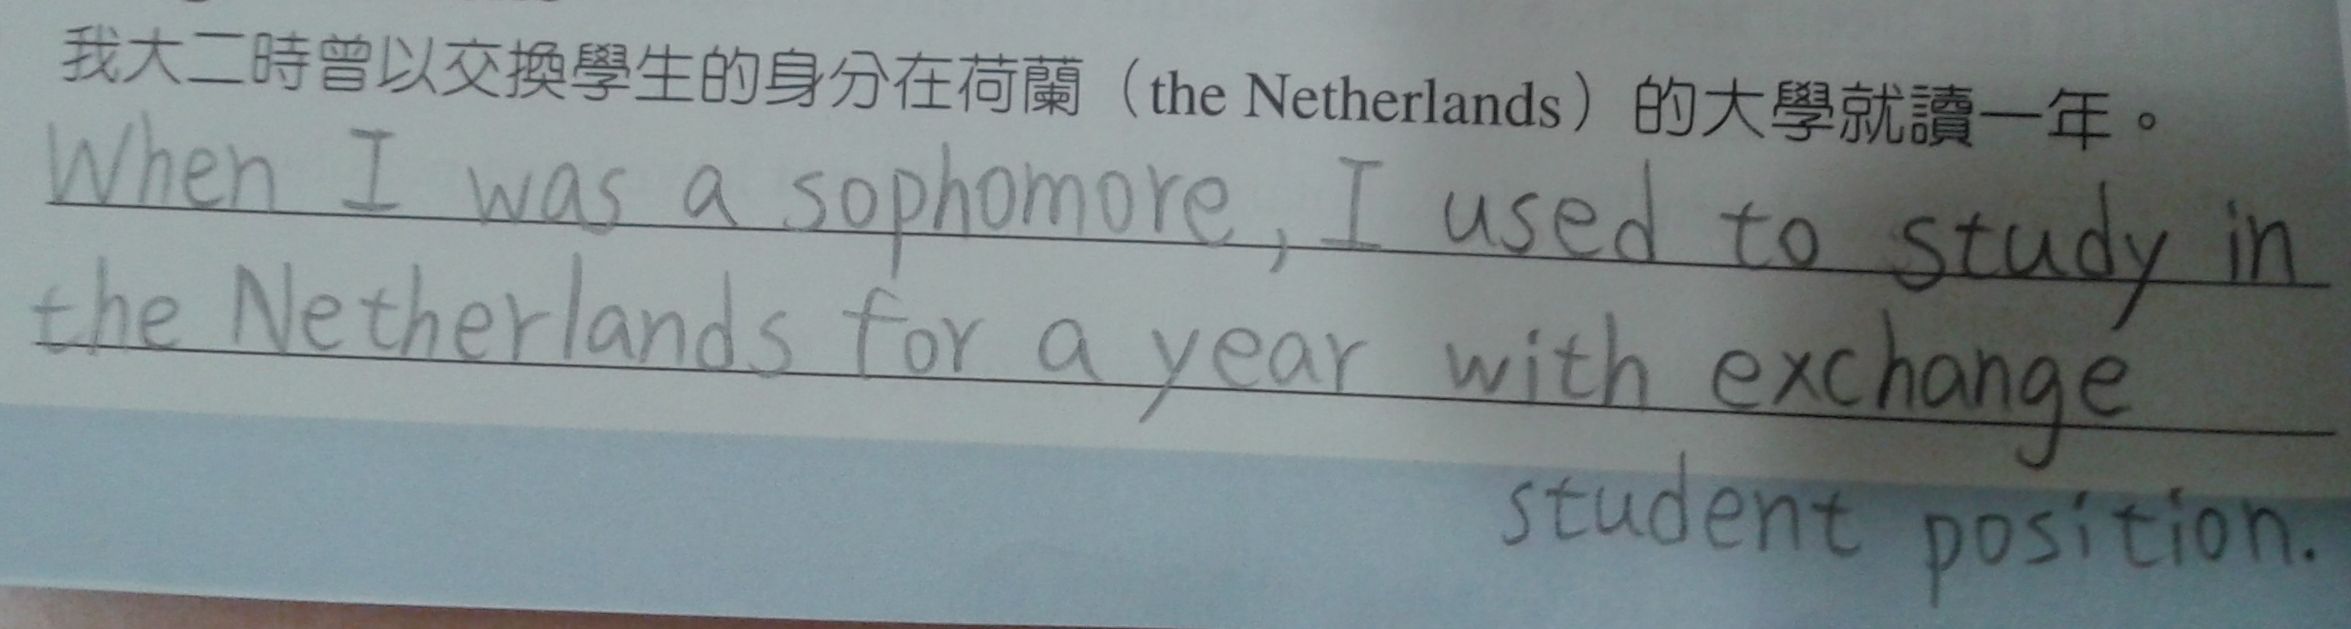 我大二時曾以交換學生的身分在荷蘭（the Netherlands）的大學就讀一年。
When I was a sophomore, I used to study in
the Netherlands for a year with exchange
student position.